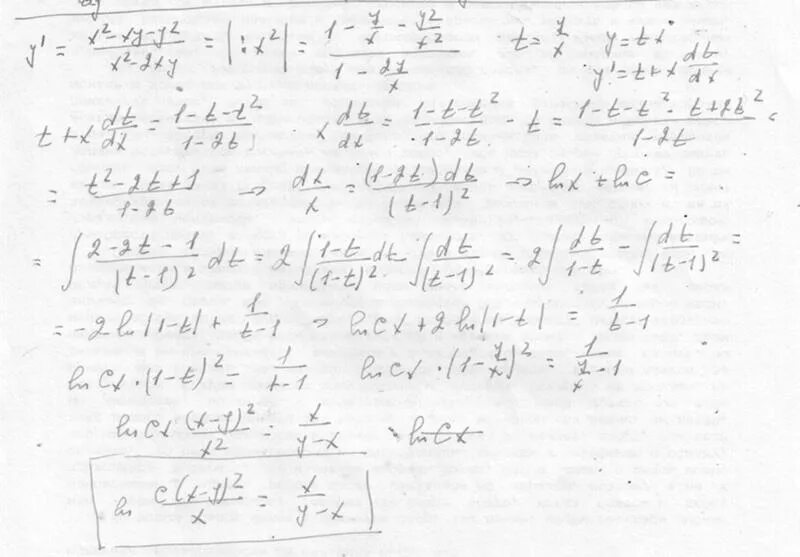 y' = (x²-xy-y²)/(x²-2xy) = |:x²| = (1 - y/x - y²/x²)/(1 - 2y/x)    t = y/x    y = tx
y' = t + x dt/dx
t + x dt/dx = (1-t-t²)/(1-2t);    x dt/dx = (1-t-t²)/(1-2t) - t = (1-t-t²-t+2t²)/(1-2t) =
= (t²-2t+1)/(1-2t) ⇒ dx/x = (1-2t)dt/(t-1)² ⇒ ln x + ln c =
= ∫ (2-2t-1)/(t-1)² dt = 2∫ (1-t)/(1-t)² dt - ∫ dt/(t-1)² = 2∫ dt/(1-t) - ∫ dt/(t-1)² =
= -2 ln|1-t| + 1/(t-1) ⇒ ln cx + 2 ln|1-t| = 1/(t-1)
ln cx·(1-t)² = 1/(t-1)    ln cx·(1-y/x)² = 1/(y/x - 1)
ln cx (x-y)²/x² = x/(y-x)    ln cx
ln c(x-y)²/x = x/(y-x)